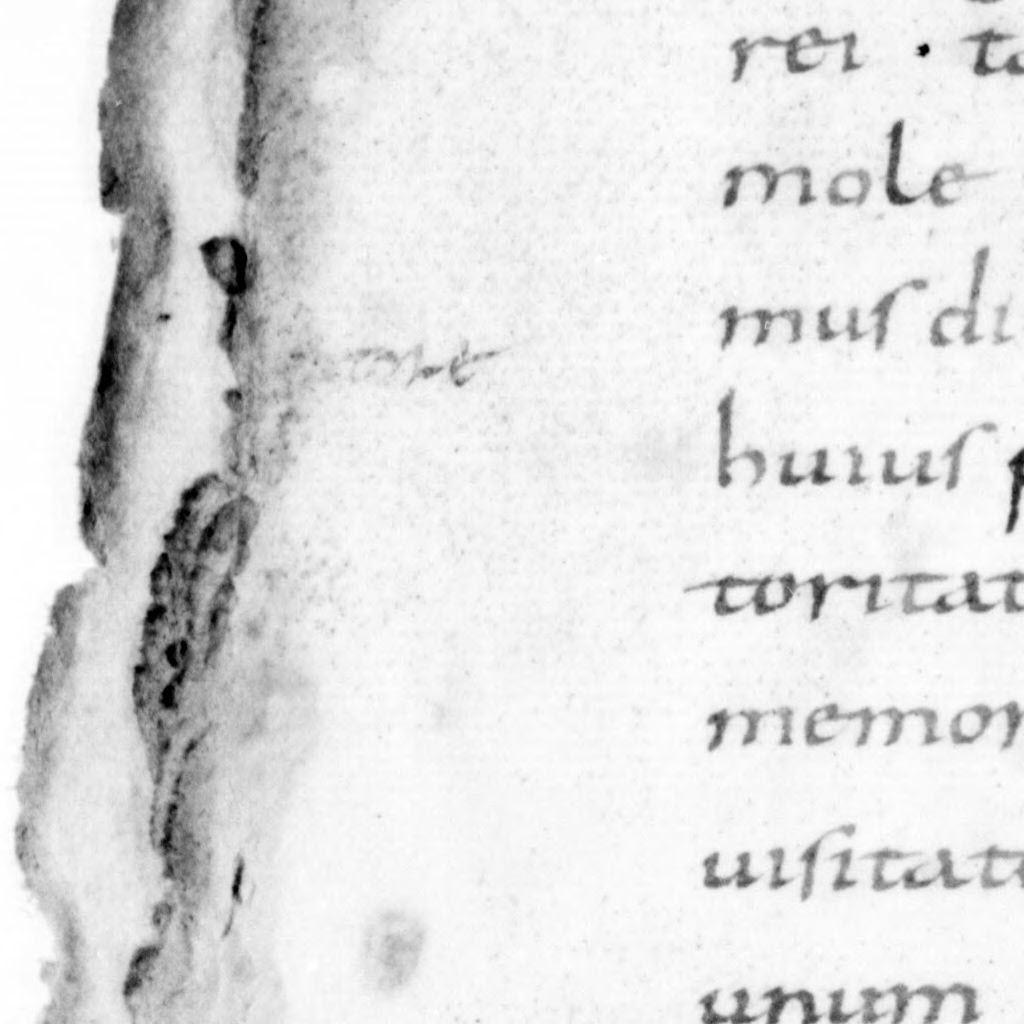 rei · ta
mole
mus di
huius
toritat
memor
uisitate
unum